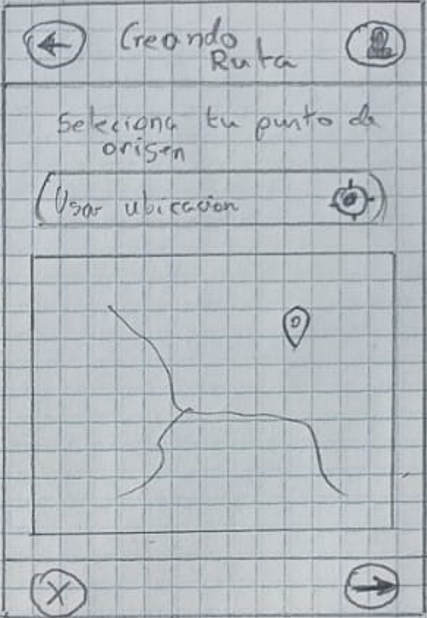 Creando
Ruta
Selecciona tu punto de
origen
Usar ubicacion